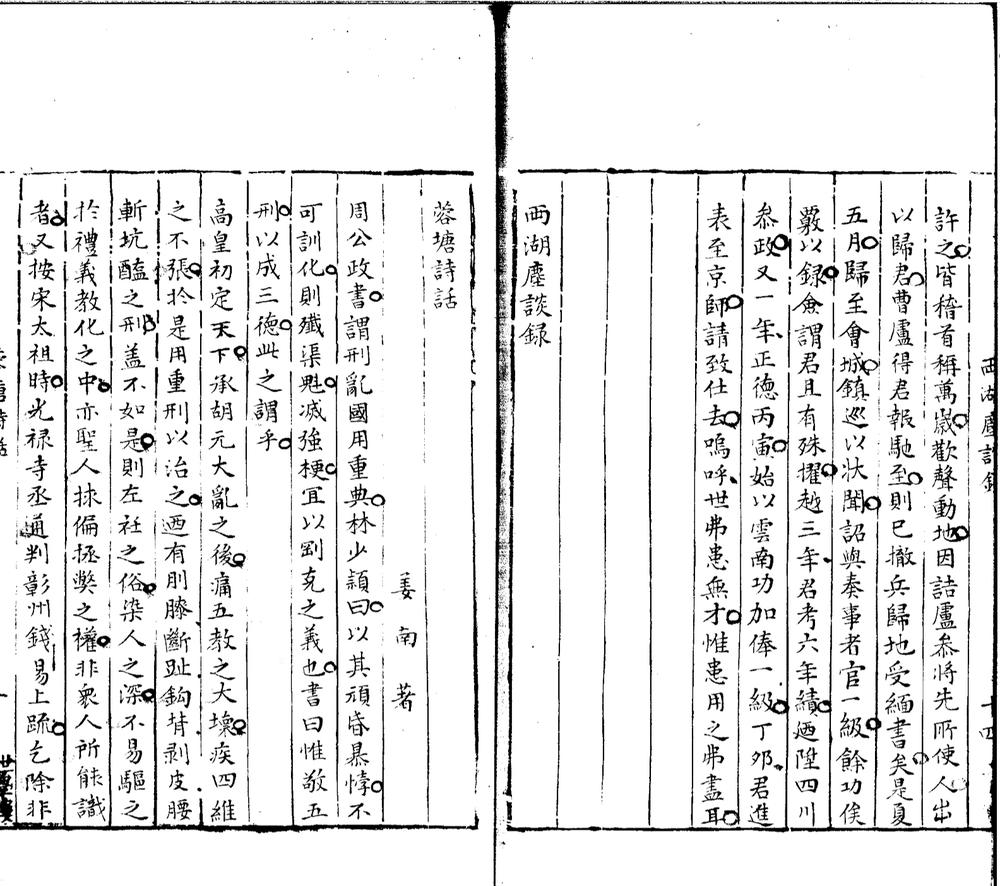 西湖塵談錄
十四
許之皆稽首稱萬歲歡聲動地因詰盧叅將先所使人出
以歸君曹盧得君報馳至則已撤兵歸地受緬書矣是夏
五月歸至會城鎮巡以狀聞詔與奏事者官一級餘功俟
覈以録僉謂君且有殊擢越三年君考六年績廼陞四川
叅政又一年正德丙寅始以雲南功加俸一級丁夘君進
表至京師請致仕去嗚呼世弗患無才惟患用之弗盡耳
西湖塵談録
蓉塘詩話
姜南著
周公政書謂刑亂國用重典林少頴曰以其頑昏暴悖不
可訓化則殲渠魁滅強梗冝以剛克之義也書曰惟敬五
刑以成三德此之謂乎
高皇初定天下承胡元大亂之後痛五教之大壞疾四維
之不張扵是用重刑以治之廼有刖膝斷趾鈎背剥皮腰
斬坑醢之刑盖不如是則左衽之俗染人之深不易驅之
扵禮義教化之中亦聖人捄偏拯獘之權非衆人所能識
者又按宋太祖時光禄寺丞通判彰州錢易上䟽乞除非
蓉塘詩話
一